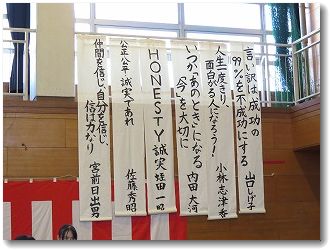 言い訳は成功の
99%を不成功にする
山口しげ子
人生一度きり、
面白がる人になろう！
小林志津香
いつか「あのとき」になる
〈今〉を大切に
内田大河
HONESTY 誠実
蛭田一昭
公正公平 誠実であれ
佐藤秀昭
仲間を信じ、自分を信じ、
信は力なり
宮前日出男